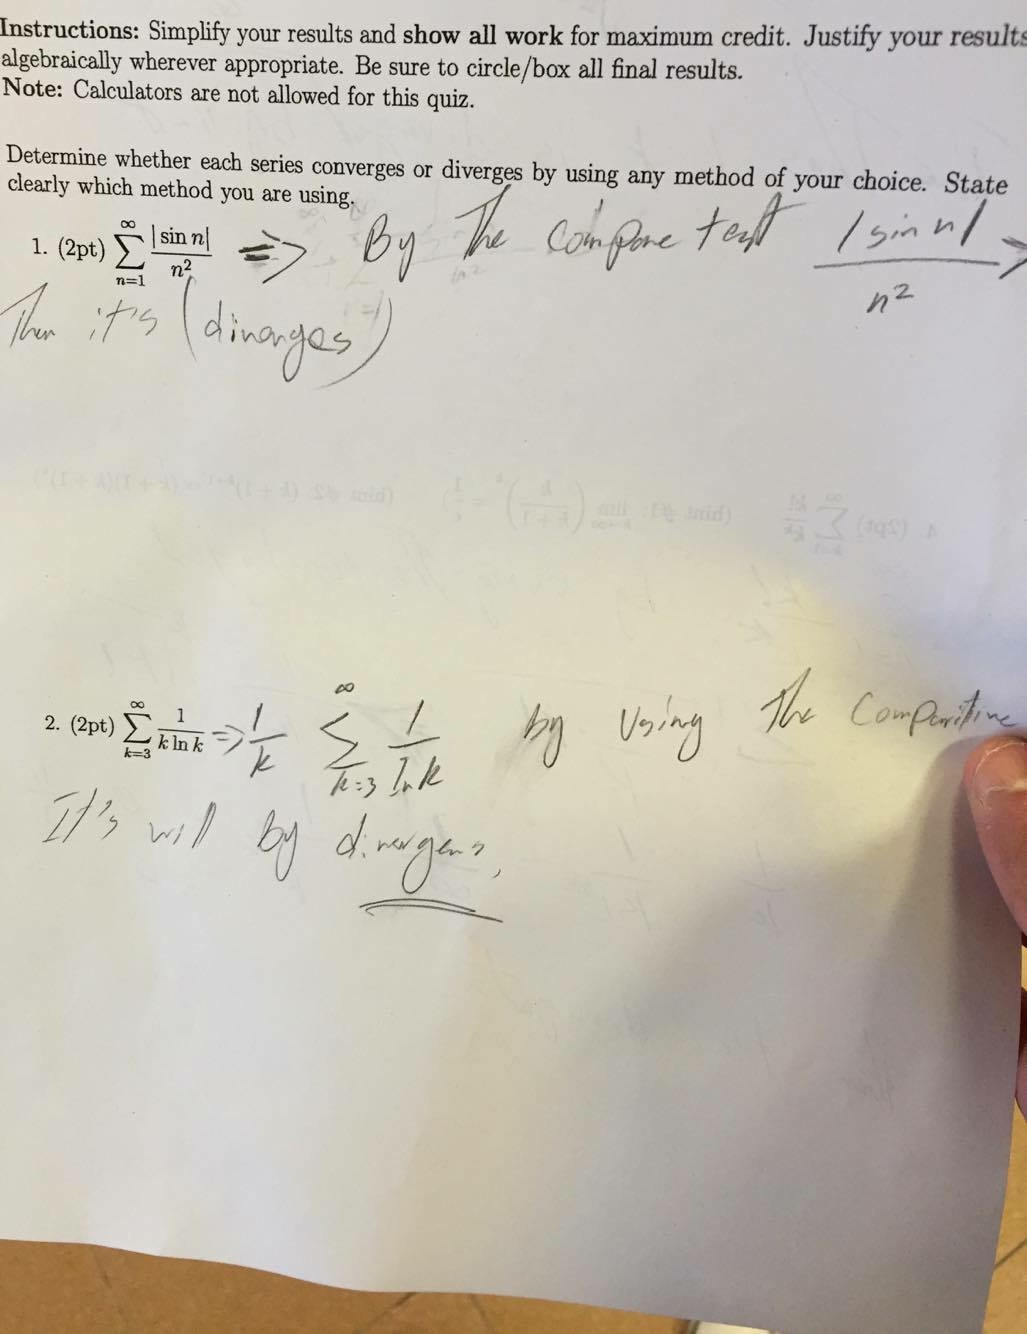 Instructions: Simplify your results and show all work for maximum credit. Justify your results
algebraically wherever appropriate. Be sure to circle/box all final results.
Note: Calculators are not allowed for this quiz.
Determine whether each series converges or diverges by using any method of your choice. State
clearly which method you are using.
1. (2pt) ∞ ∑ n=1 |sin n| / n² => By The Compare test |sin n| / n² →
Then it's (dinerges)
2. (2pt) ∞ ∑ k=3 1 / k ln k => 1/k ∞ ∑ k=3 1 / ln k by Using The Comparitive
It's will by